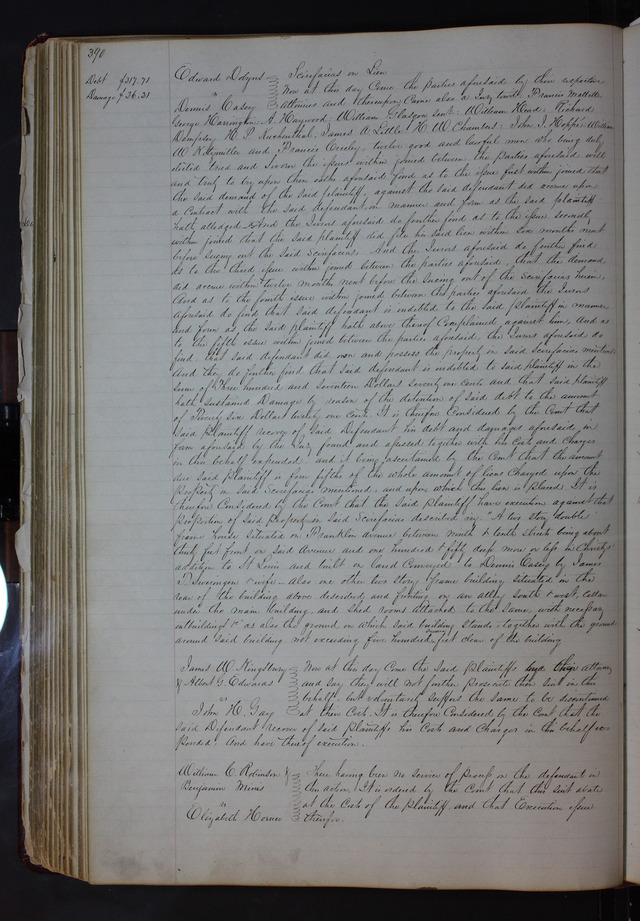 390
Debt $317.71
Damage $26.21
Edward Dobyns Scirefacias on Lien
vs Now at this day Come the parties aforesaid by their respective
Dennis Casey attornies and thereupon Came also a Jury towit Francis
George Harrington A. Haywood William Glasgow William Head Richard
Dempsey H. P. James A Little H. W. Chambers John J. Hoppe William
W and Francis twelve good and lawful men who being duly
elected tried and Sworn the issues within joined between the parties aforesaid well
and truly to try upon their oaths aforesaid find as to the issue first within joined that
the said demand of the said plaintiff, against the said defendant did accrue upon
a Contract with the said defendant in manner and form as the said plaintiff
hath alledged. And the Jurors aforesaid do further find as to the issue secondly
within joined that the said plaintiff did file his said lien within six months next
before suing out the said Scirefacias. And the Jurors aforesaid do further find
as to the third issue within joined between the parties aforesaid, that the demand
did accrue within twelve months next before the suing out of the Scirefacias herein.
And as to the fourth issue within joined between the parties aforesaid the Jurors
aforesaid do find that said defendant is indebted to the said plaintiff in manner
and form as the said plaintiff hath above thereof Complained against him, And as
to the fifth issue within joined between the parties aforesaid, the Jurors aforesaid do
find that said defendant did own and possess the property in said Scirefacias mentioned
And they do further find that said defendant is indebted to said plaintiff in the
sum of Three hundred and seventeen Dollars seventy one cents and that said plaintiff
hath sustained Damage by reason of the detention of said debt to the amount
of Twenty six Dollars twenty one cents. It is therefore Considered by the Court that
said plaintiff recover of said Defendant his debt and damages aforesaid in
form aforesaid by the Jury found and assessed together with his Costs and Charges
in this behalf expended. and it being ascertained by the Court that the amount
due said Plaintiff is four fifths of the whole amount of liens Charged upon the
property in said Scirefacias mentioned, and upon which the lien is placed It is
therefore Considered by the Court that the said Plaintiff have execution against that
proportion of said property in said Scirefacias described viz: "A two story double
frame house situated on Franklin avenue between ninth & tenth streets being about
thirty feet front on said Avenue and one hundred & fifty deep more or less in Christy's
addition to St Louis and built on land Conveyed to Dennis Casey by James
T Swearingen & wife - also one other two story frame building situated in the
rear of the building above described, and fronting on an alley South & west, cellar
under the main building, and shed rooms attached to the same, with necessary
outbuildings &c as also the ground on which said building stands together with the ground
around said building not exceeding five hundred feet clear of the building
James W. Kingsbury Now at this day Come the said plaintiffs by their attorney
& Albert G. Edwards and say they will not further prosecute their suit in this
vs behalf, but voluntarily suffer the same to be discontinued
John H. Gay at their Cost. It is therefore Considered by the Court that the
said Defendant recover of said plaintiffs his Costs and Charges in this behalf ex-
pended. And have thereof execution.
William C. Robinson & There having been no service of process on the defendant in
Benjamin this action, It is ordered by the Court that this suit abate
vs at the Costs of the Plaintiff and that Execution issue
Elizabeth Horner therefor.